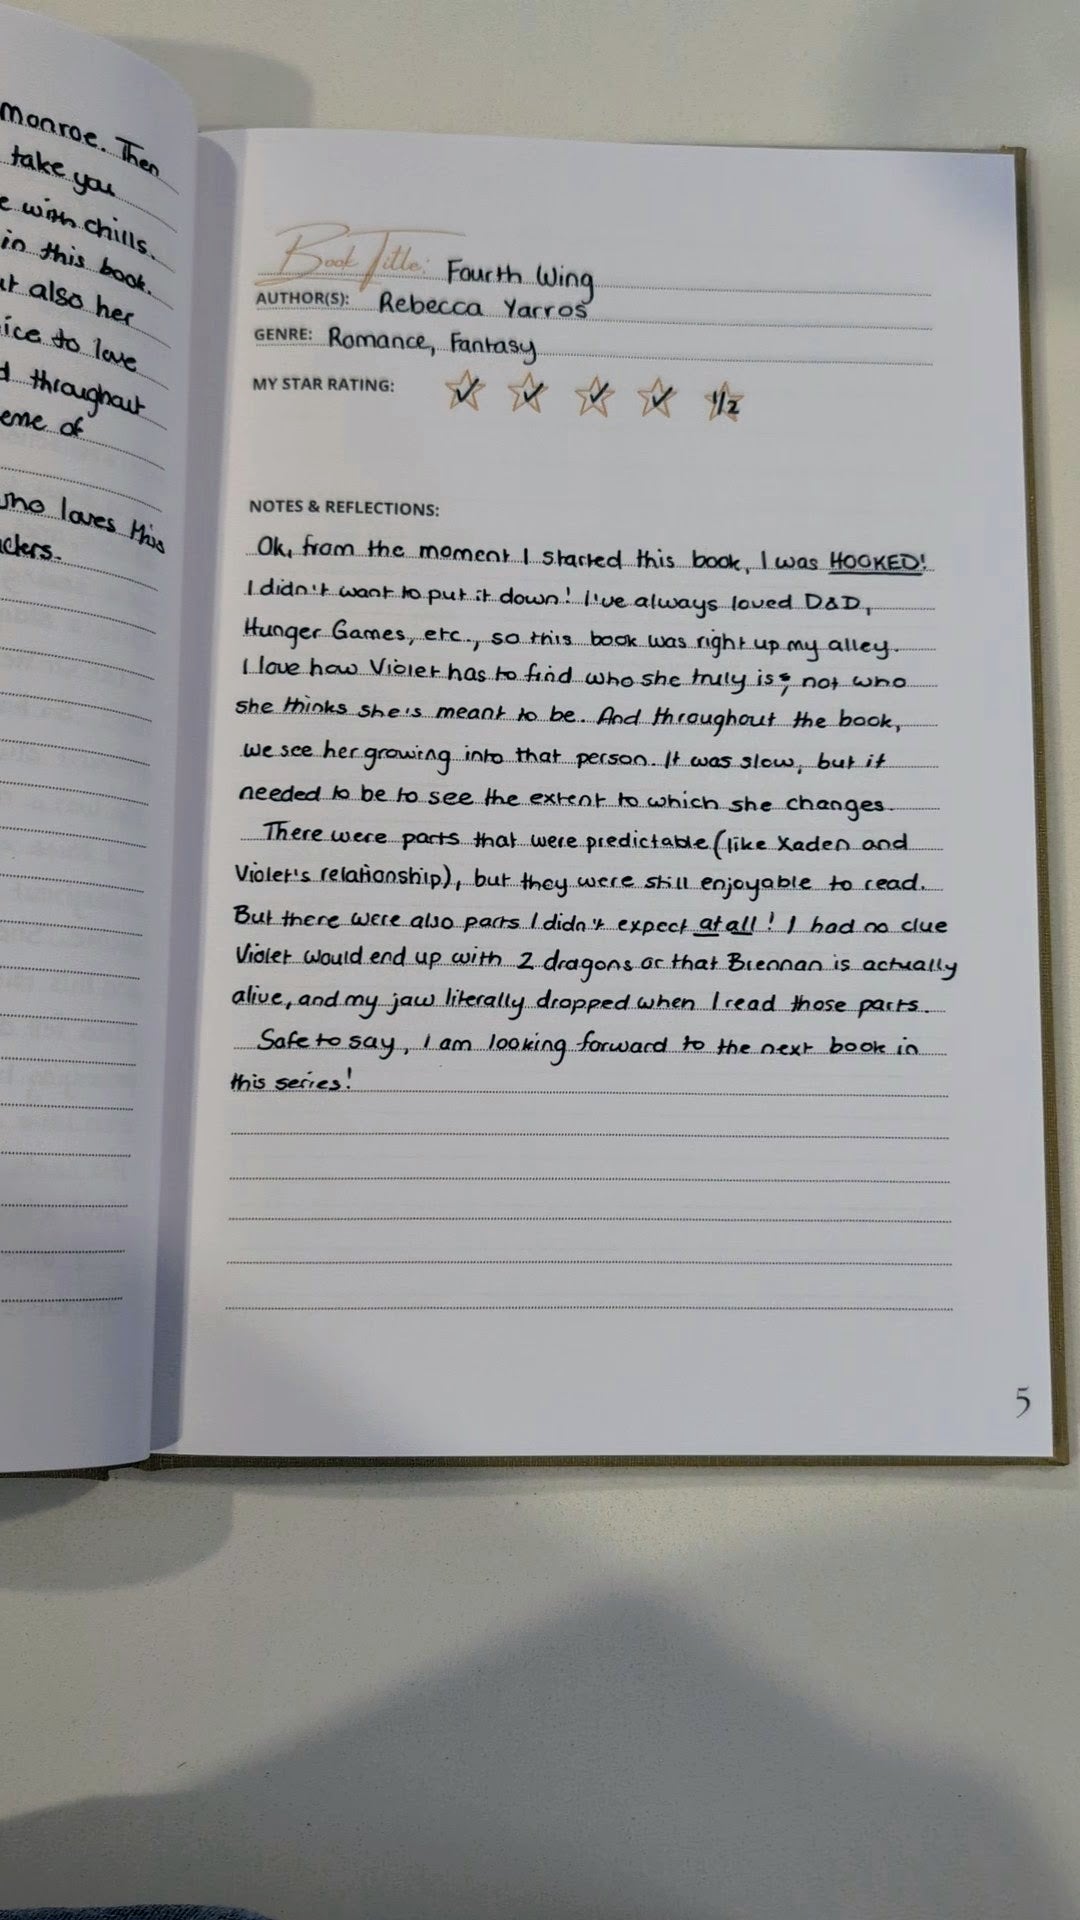 monroe. Then
take you
with chills.
in this book.
also her
to love
throughout
of
who loves this
Book Title: Fourth Wing
AUTHOR(S): Rebecca Yarros
GENRE: Romance, Fantasy
MY STAR RATING: 1/2
NOTES & REFLECTIONS:
Ok, from the moment I started this book, I was HOOKED!
I didn't want to put it down! I've always loved D&D,
Hunger Games, etc., so this book was right up my alley.
I love how Violet has to find who she truly is, not who
she thinks she's meant to be. And throughout the book,
we see her growing into that person. It was slow, but it
needed to be to see the extent to which she changes.
There were parts that were predictable (like Xaden and
Violet's relationship), but they were still enjoyable to read.
But there were also parts I didn't expect at all! I had no clue
Violet would end up with 2 dragons or that Brennan is actually
alive, and my jaw literally dropped when I read those parts.
Safe to say, I am looking forward to the next book in
this series!
5